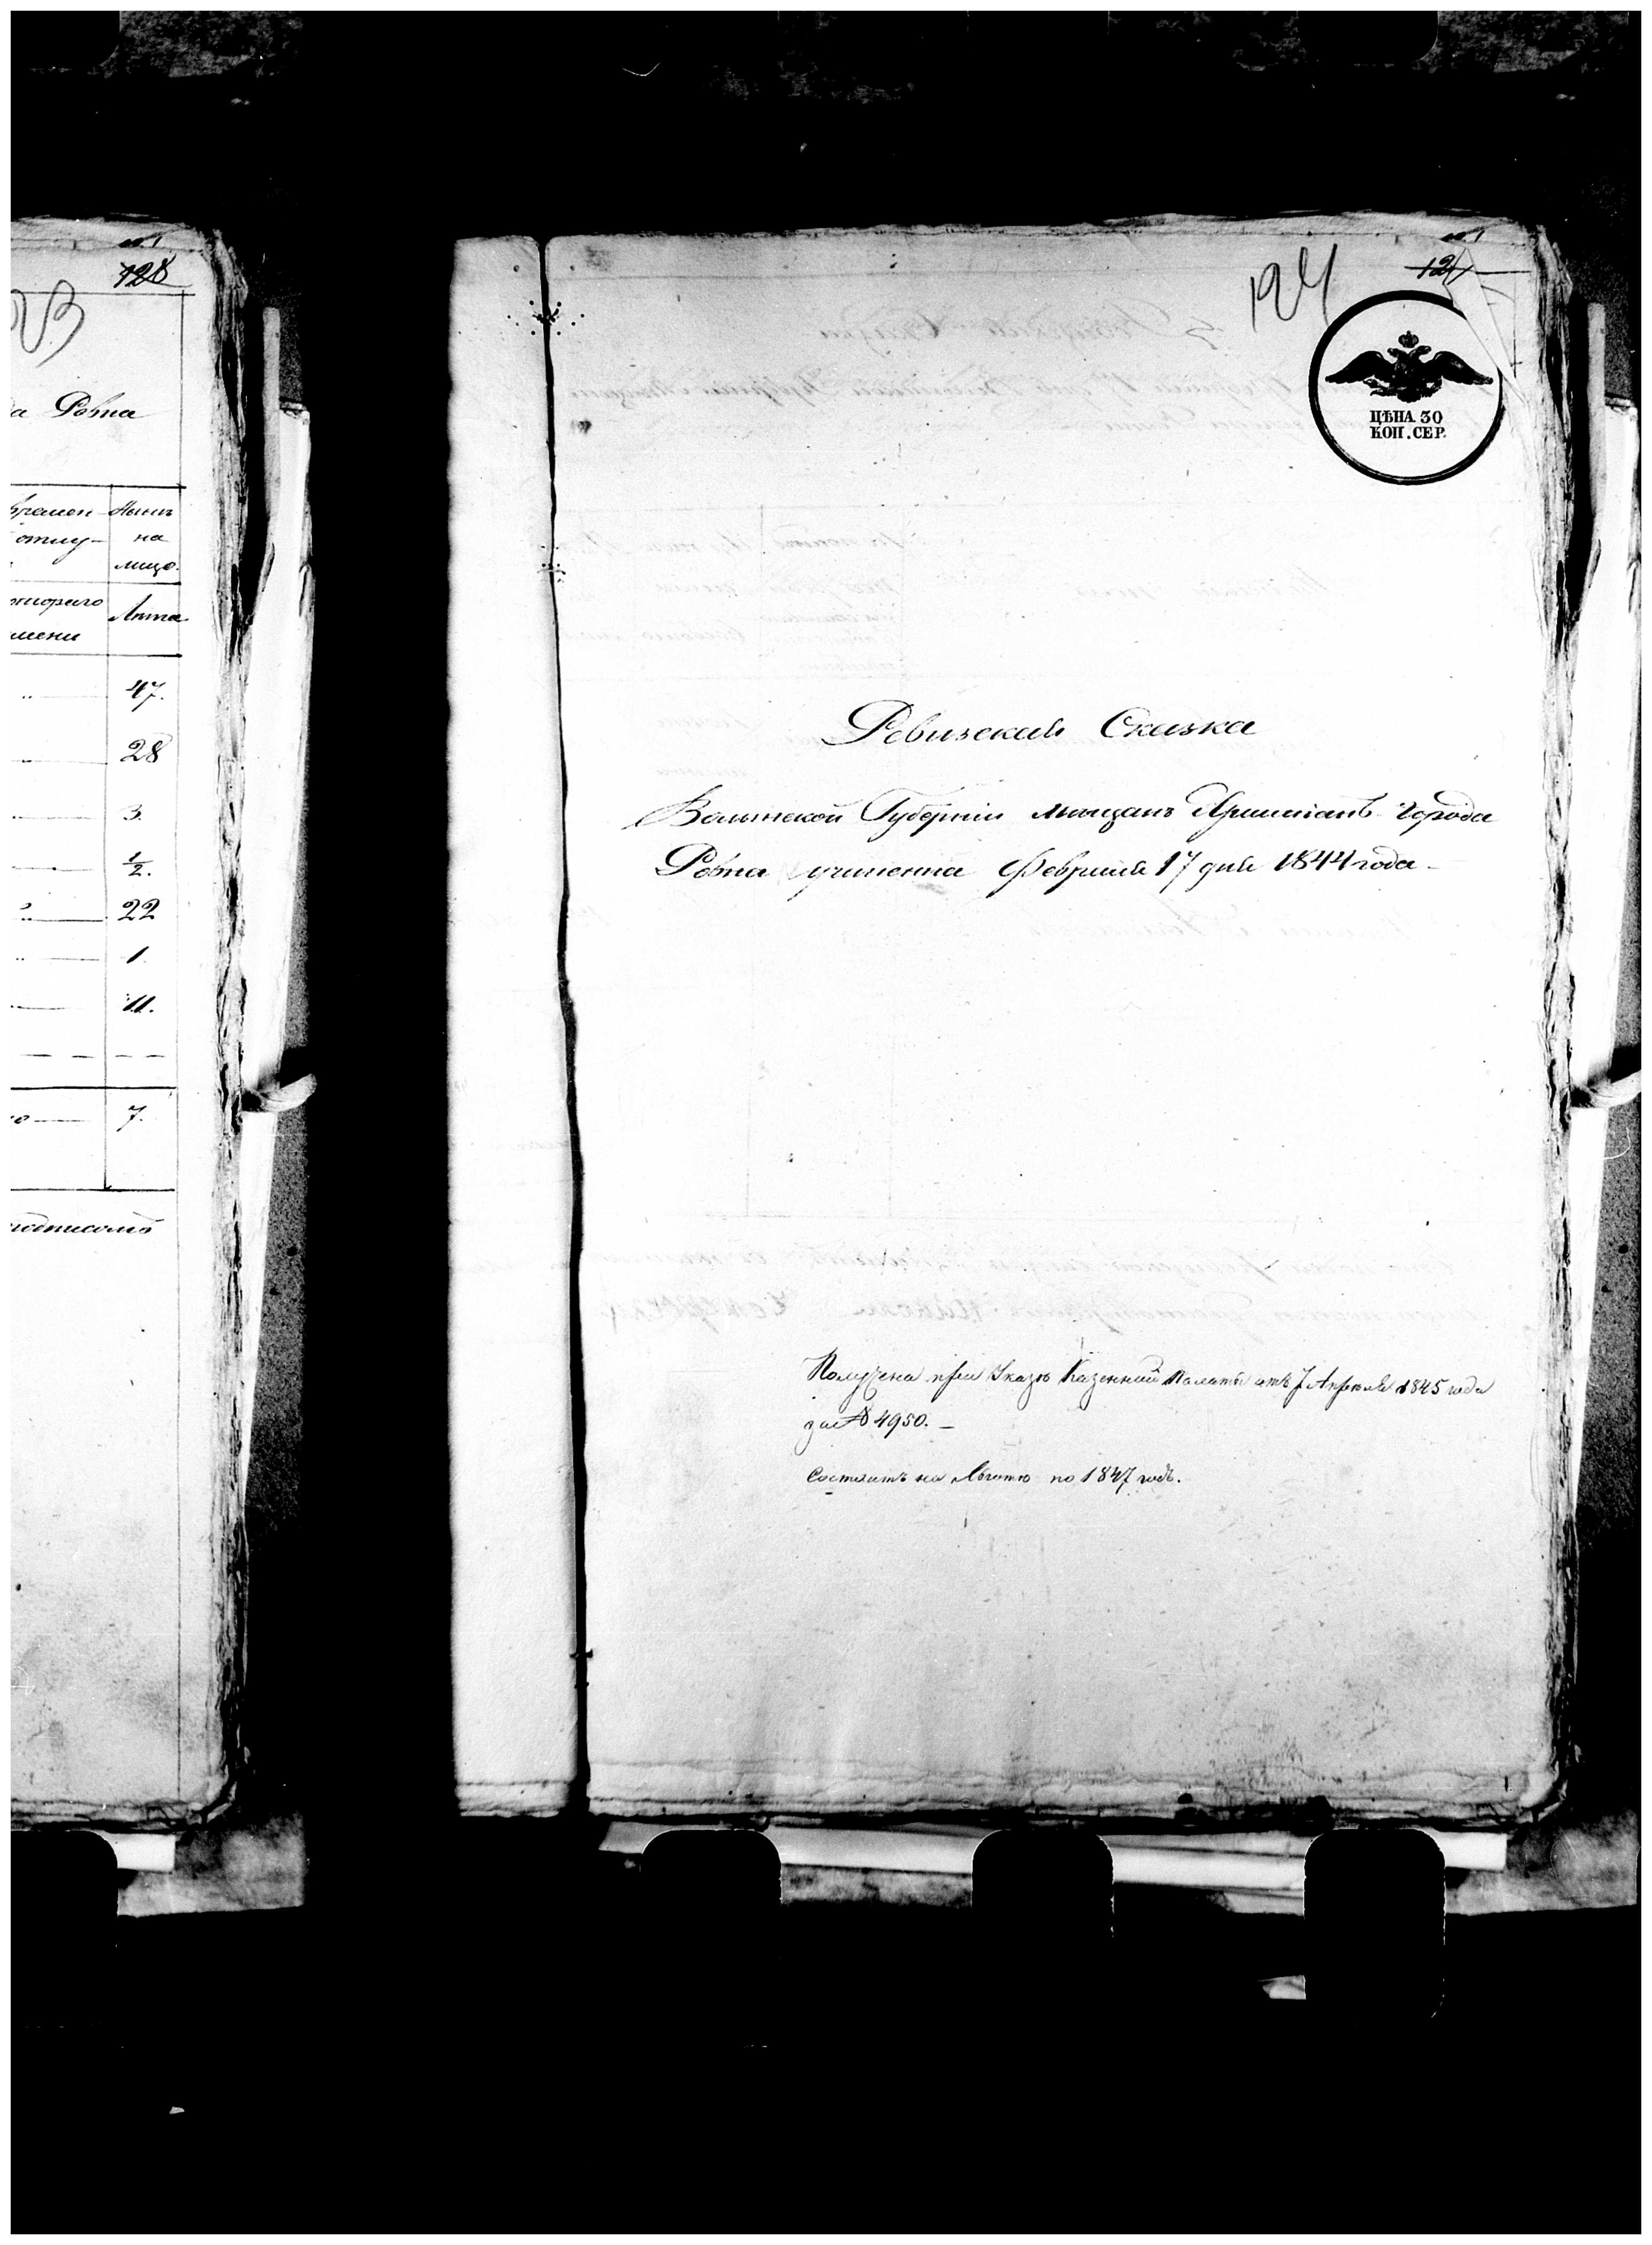 128
да Ровна
времен-
Нынѣ
отлу-
на
лицо.
Лѣта
мени
47.
28
3.
1/2.
22
1.
11.
7.
124
ЦѢНА 30
КОП. СЕР.
Ревизская Сказка
Волынской Губерніи мѣщанъ Христіанъ города
Ровна учинена Февраля 17 дня 1844 года
Получена при Указѣ Казенной Палаты отъ 7 Апрѣля 1845 года
за № 4950. —
Состоитъ на льготѣ по 1847 годъ.